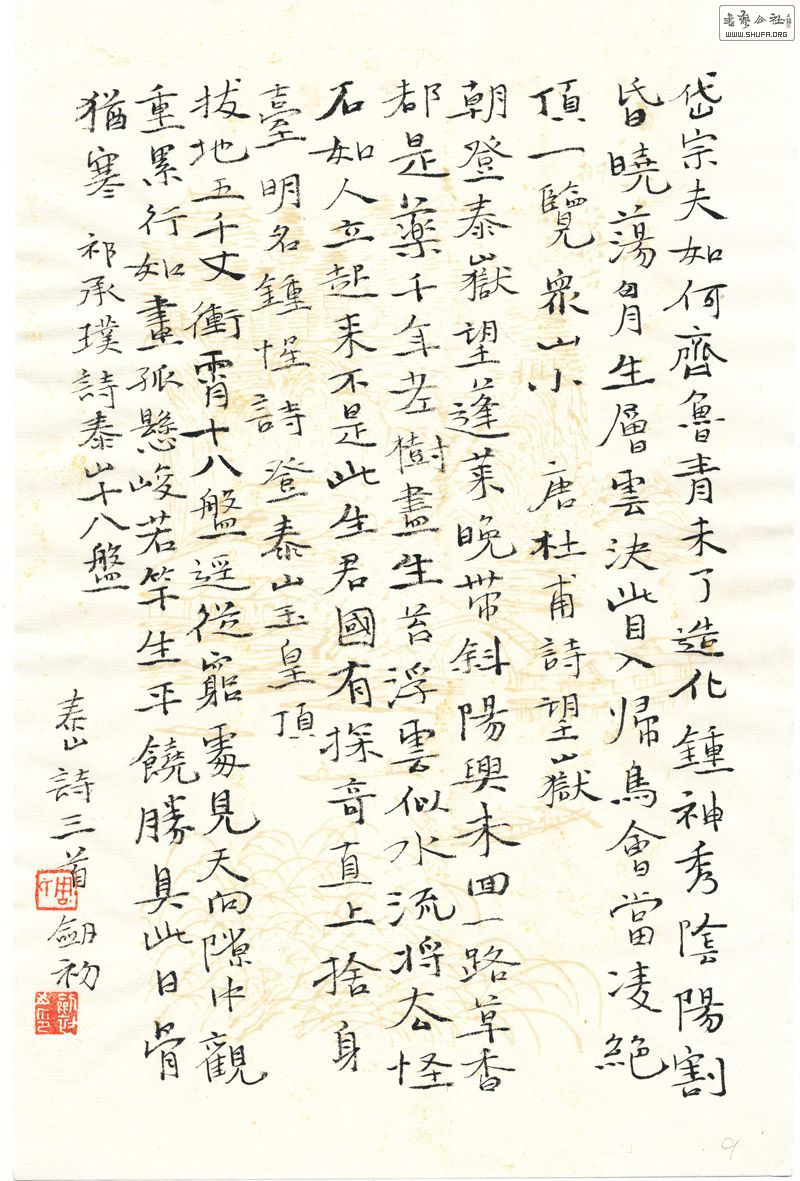 岱宗夫如何齊魯青未了造化鍾神秀陰陽割
昏曉蕩胷生層雲決眥入歸鳥會當凌絕
頂一覽衆山小 唐杜甫詩望嶽
朝登泰嶽望蓬萊晚帶斜陽興未回一路草香
都是藥千年老樹盡生苔浮雲似水流將去怪
石如人立起來不是此生君國有探奇直上捨身
臺明名鍾惺詩登泰山玉皇頂
拔地五千丈衝霄十八盤逕從窮處見天向隙中觀
重累行如畫孤懸峻若竿生平饒勝具此日骨
猶寒 祁承㸁詩泰山十八盤
泰山詩三首
劒初
書藝公社
WWW.SHUFA.ORG
9